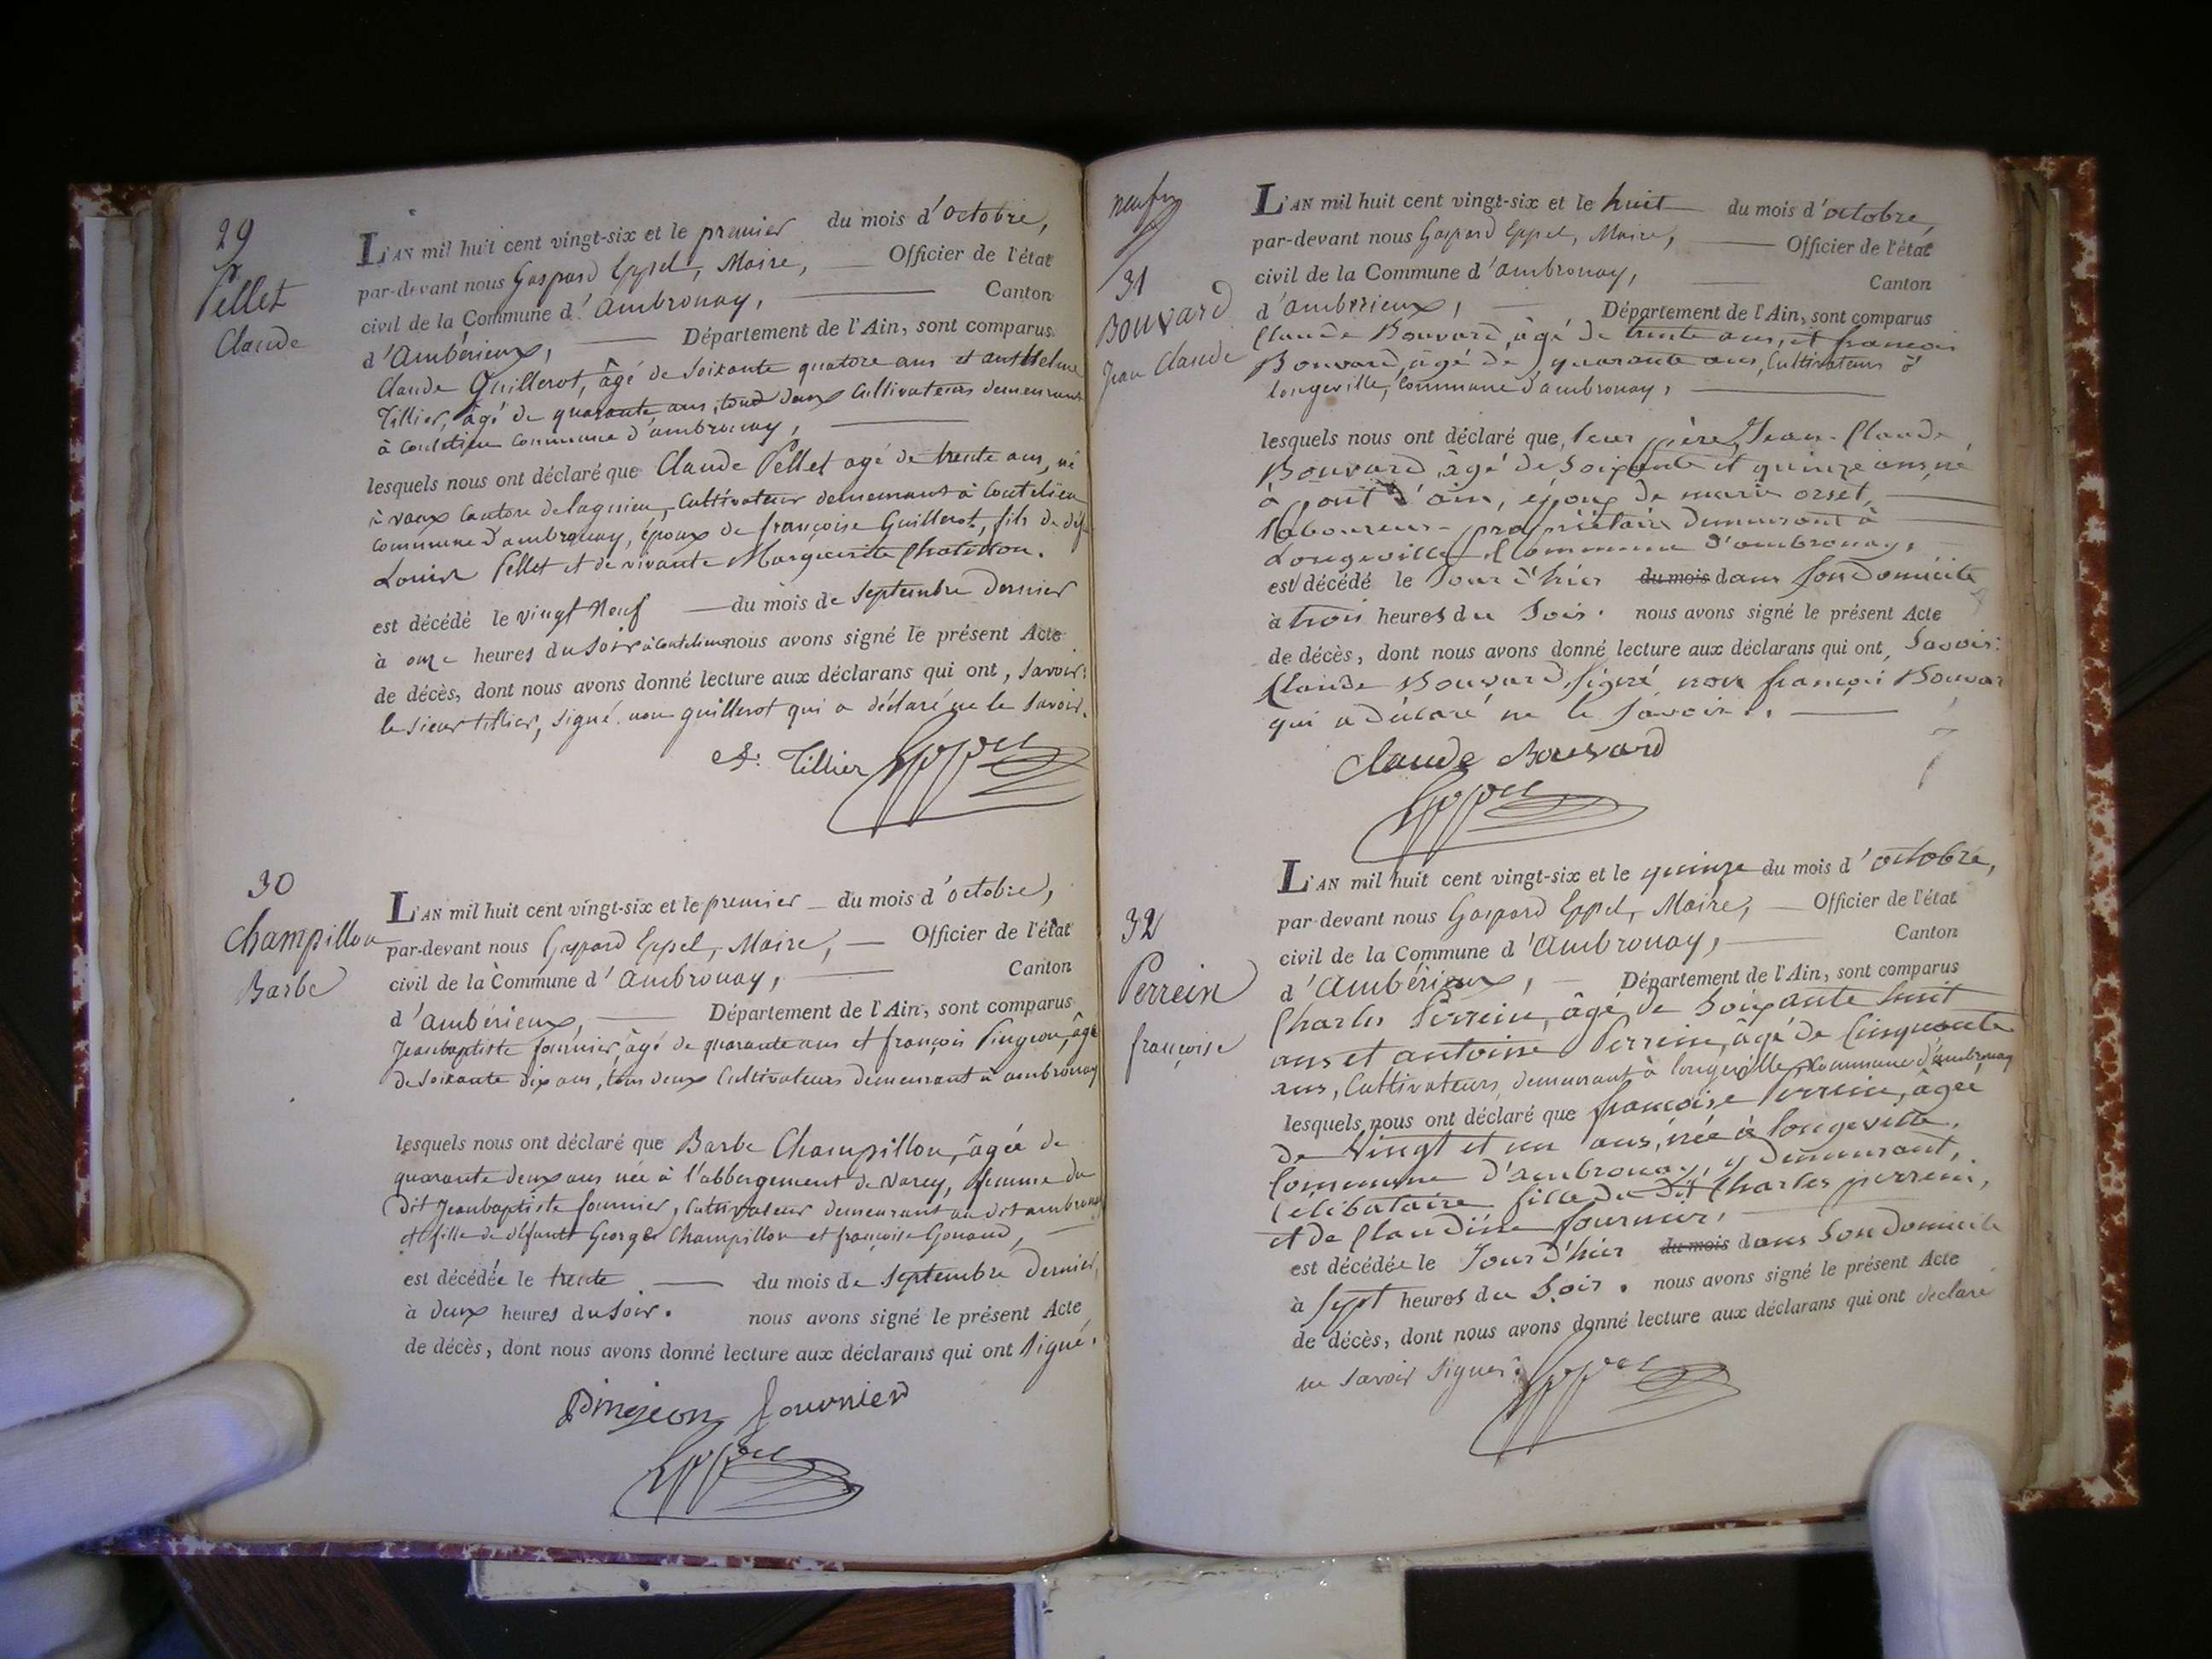 29
Pellet
Claude
L'AN mil huit cent vingt-six et le premier du mois d'octobre,
par-devant nous Gaspard Eppel, Maire, Officier de l'état
civil de la Commune d'Ambronay, Canton
d'Ambérieux, Département de l'Ain, sont comparus
Claude Guillerot, âgé de soixante quatore ans et anthelme
Tillier, âgé de quarante ans, tous deux Cultivateurs demeurant
à coutelieu commune d'ambronay,
lesquels nous ont déclaré que Claude Pellet agé de trente ans, né
à vaux Canton de lagnieu, Cultivateur demeurant à Coutelieu
commune d'ambronay, époux de françoise Guillerot, fils de déf
Louis Pellet et de vivante Marguerite Chatillon.
est décédé le vingt neuf du mois de septembre dernier
à onze heures du soir à Coutelieu nous avons signé le présent Acte
de décès, dont nous avons donné lecture aux déclarans qui ont, savoir:
le sieur tillier, signé non guillerot qui a déclaré ne le savoir.
A. Tillier Eppel
30
Champillon
Barbe
L'AN mil huit cent vingt-six et le premier du mois d'octobre,
par-devant nous Gaspard Eppel, Maire, Officier de l'état
civil de la Commune d'Ambronay, Canton
d'ambérieux, Département de l'Ain, sont comparus
Jeanbaptiste fournier, âgé de quarante ans et françois Pingeon, âgé
de soixante dix ans, tous deux Cultivateurs demeurant à ambronay
lesquels nous ont déclaré que Barbe Champillon, âgée de
quarante deux ans née à l'abbergement de varey, femme du
dit Jeanbaptiste fournier, Cultivateur demeurant au dit ambronay
et fille de défunts George Champillon et françoise Gonaud,
est décédée le trente du mois de septembre dernier,
à deux heures du soir. nous avons signé le présent Acte
de décès, dont nous avons donné lecture aux déclarans qui ont signé.
Pingeon fournier
Eppel
31
Bouvard
Jean Claude
L'AN mil huit cent vingt-six et le huit du mois d'octobre,
par-devant nous Gaspard Eppel, Maire, Officier de l'état
civil de la Commune d'ambronay, Canton
d'ambérieux, Département de l'Ain, sont comparus
Claude Bouvard, âgé de trente ans, et francois
Bouvard, âgé de quarante ans, Cultivateurs à
longeville, Commune d'ambronay,
lesquels nous ont déclaré que, leur père, Jean-Claude
Bouvard, âgé de soixante et quinze ans, né
à pont d'ain, époux de marie orset,
laboureur-propriétaire demeurant à
Longeville Commune d'ambronay,
est décédé le Jour d'hier du mois dans son domicile
à trois heures du Soir. nous avons signé le présent Acte
de décès, dont nous avons donné lecture aux déclarans qui ont, Savoir:
Claude Bouvard, signé non françois Bouvar
qui a déclaré ne le savoir.
Claude Bouvard
Eppel
32
Perrein
françoise
L'AN mil huit cent vingt-six et le quinze du mois d'octobre,
par-devant nous Gaspard Eppel, Maire, Officier de l'état
civil de la Commune d'Ambronay, Canton
d'Ambérieux, Département de l'Ain, sont comparus
Charles Perrein, âgé de Soixante huit
ans et antoine Perrein, âgé de Cinquante
ans, Cultivateurs, demeurant à longeville, Commune d'ambronay
lesquels nous ont déclaré que françoise Perrein, âgée
de Vingt et un ans, née à longeville,
Commune d'ambronay, y demeurant,
Célibataire fille du dit Charles perrein,
et de Claudine fournier,
est décédée le Jour d'hier du mois dans son domicile
à sept heures du Soir. nous avons signé le présent Acte
de décès, dont nous avons donné lecture aux déclarans qui ont déclaré
ne savoir signer.
Eppel